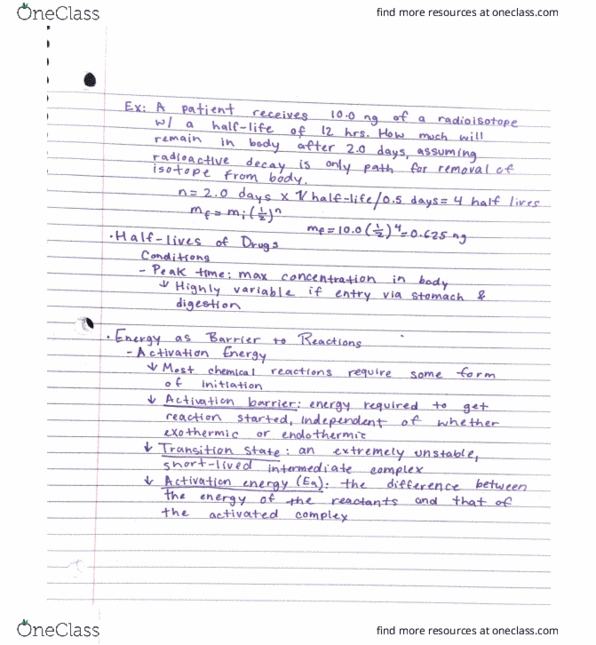 OneClass
find more resources at oneclass.com
Ex: A patient receives 10.0 ng of a radioisotope
w/ a half-life of 12 hrs. How much will
remain in body after 2.0 days, assuming
radioactive decay is only path for removal of
isotope from body.
n = 2.0 days x 1/half-life/0.5 days = 4 half lives
mf = mi(1/2)^n
mf = 10.0(1/2)^4 = 0.625 ng
· Half-lives of Drugs
Conditions
- Peak time: max concentration in body
↓ Highly variable if entry via stomach &
digestion
· Energy as Barrier to Reactions
- Activation Energy
↓ Most chemical reactions require some form
of initiation
↓ Activation barrier: energy required to get
reaction started, independent of whether
exothermic or endothermic
↓ Transition State: an extremely unstable,
short-lived intermediate complex
↓ Activation energy (Ea): the difference between
the energy of the reactants and that of
the activated complex
OneClass
find more resources at oneclass.com